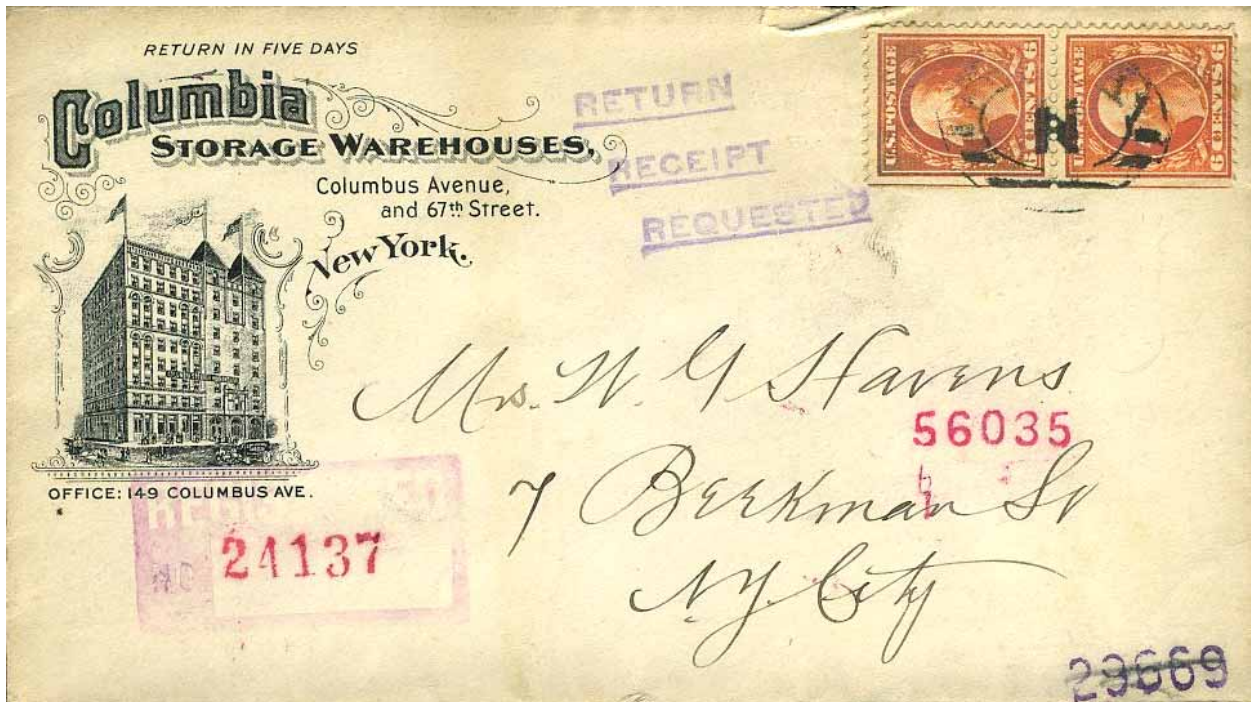 RETURN IN FIVE DAYS
Columbia
STORAGE WAREHOUSES,
Columbus Avenue,
and 67th Street.
New York.
OFFICE: 149 COLUMBUS AVE.
RETURN
RECEIPT
REQUESTED
U.S. POSTAGE 6 CENTS 6
U.S. POSTAGE 6 CENTS 6
N
Mrs. W. G Havens
56035
7 Beekman St
N.Y. City
REGISTERED
NO 24137
29669